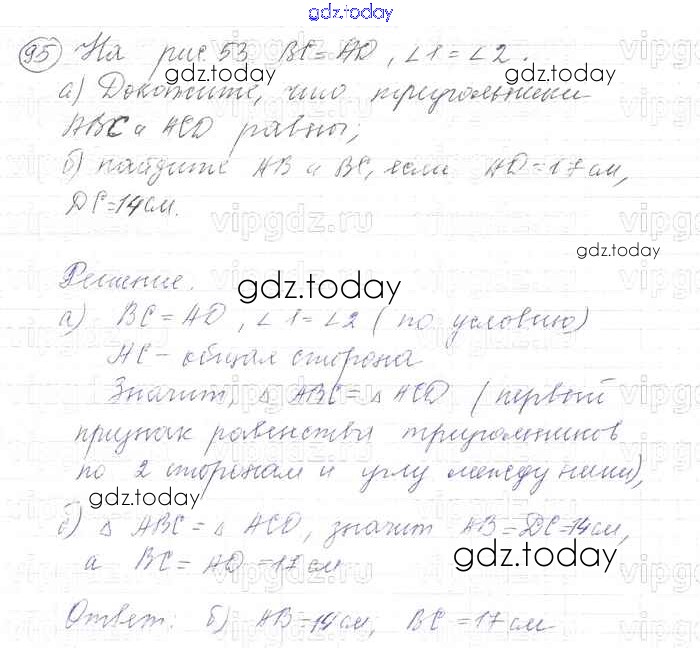 gdz.today
95 На рис. 53 BC=AD, ∠1=∠2.
gdz.today
а) Докажите, что треугольники
ABC и ACD равны;
б) найдите AB и BC, если AD=17см,
DC=14см.
vipgdz.ru
gdz.today
Решение.
gdz.today
а) BC=AD, ∠1=∠2 (по условию)
AC - общая сторона
Значит, △ ABC=△ ACD (первый
признак равенства треугольников
по 2 сторонам и углу между ними),
gdz.today
б) △ ABC=△ ACD, значит AB=DC=14см,
а BC=AD=17см
gdz.today
Ответ: б) AB=14см, BC=17см